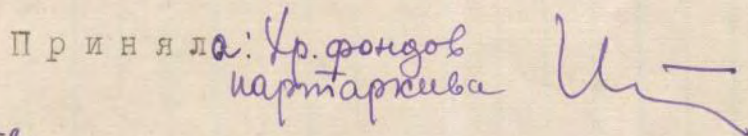 Приняла: Хр. фондов
партархива